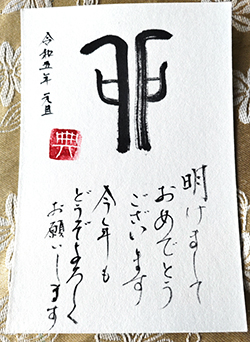 卯
令和五年 元旦
明けまして
おめでとう
ございます
今年も
どうぞよろしく
お願いします